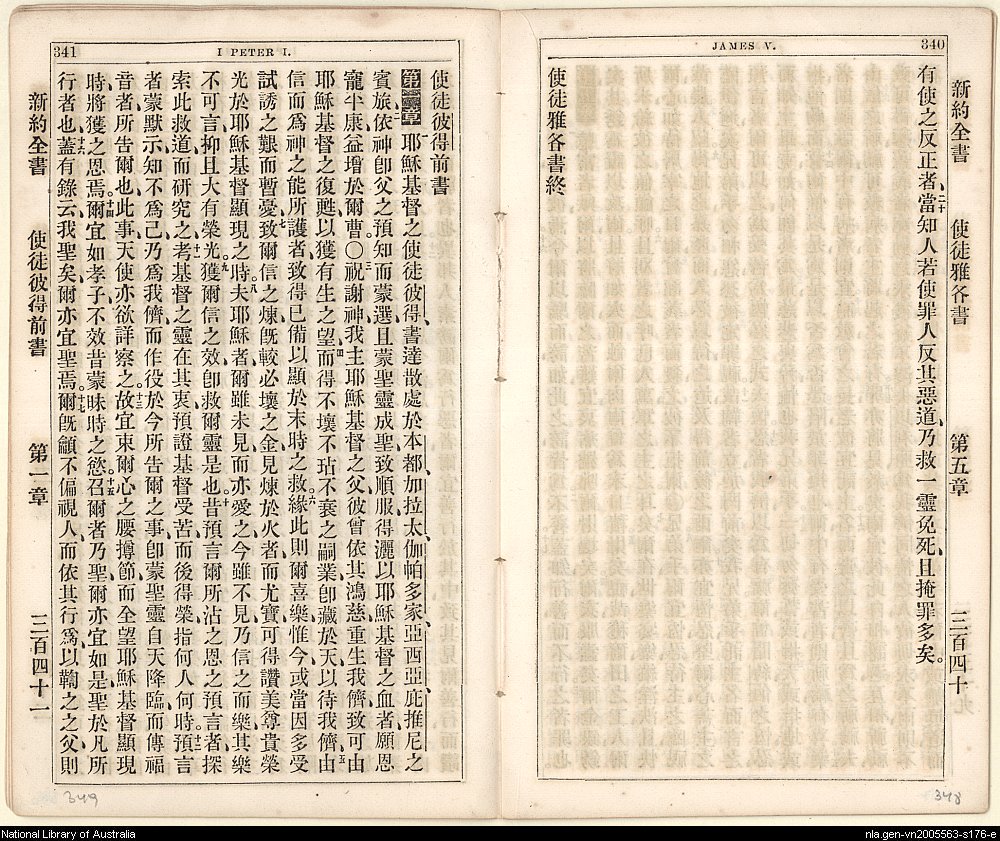 JAMES V.
340
新約全書
使徒雅各書
第五章
三百四十
有使之反正者、二十當知人若使罪人反其惡道、乃救一靈免死、且掩罪多矣。
使徒雅各書終
348
341
I PETER I.
使徒彼得前書
第壹章 一耶穌基督之使徒彼得、書達散處於本都、加拉太、伽帕多家、亞西亞、庇推尼之
賓旅、二依神卽父之預知而蒙選、且蒙聖靈成聖、致順服得灑以耶穌基督之血者、願恩
寵平康益增於爾曹。〇三祝謝神我主耶穌基督之父、彼曾依其鴻慈重生我儕、致可由
耶穌基督之復甦、以獲有生之望、四而得不壞不玷不衰之嗣業、卽藏於天、以待我儕、五由
信而爲神之能所護者、致得已備以顯於末時之救。六緣此則爾喜樂、惟今或當因多受
試誘之艱而暫憂、七致爾信之煉、旣較必壞之金、見煉於火者而尤寶、可得讚美尊貴榮
光、於耶穌基督顯現之時、八夫耶穌者、爾雖未見而亦愛之、今雖不見、乃信之而樂、其樂
不可言、抑且大有榮光、九獲爾信之效、卽救爾靈是也。十昔預言爾所沾之恩之預言者、探
索此救道而研究之、十一考基督之靈在其衷、預證基督受苦、而後得榮、指何人何時。十二預言
者蒙默示、知不爲己、乃爲我儕而作役、於今所告爾之事、卽蒙聖靈自天降臨、而傳福
音者、所告爾也、此事天使亦欲詳察之。十三故宜束爾心之腰、撙節而全望耶穌基督顯現
時、將獲之恩焉。十四爾宜如孝子、不效昔蒙昧時之慾。十五召爾者乃聖、爾亦宜如是聖於凡所
行者也、十六蓋有錄云、我聖矣、爾亦宜聖焉。十七爾旣籲不偏視人、而依其行爲、以鞫之之父、則
新約全書
使徒彼得前書
第一章
三百四十一
349
National Library of Australia
nla.gen-vn2005563-s176-e